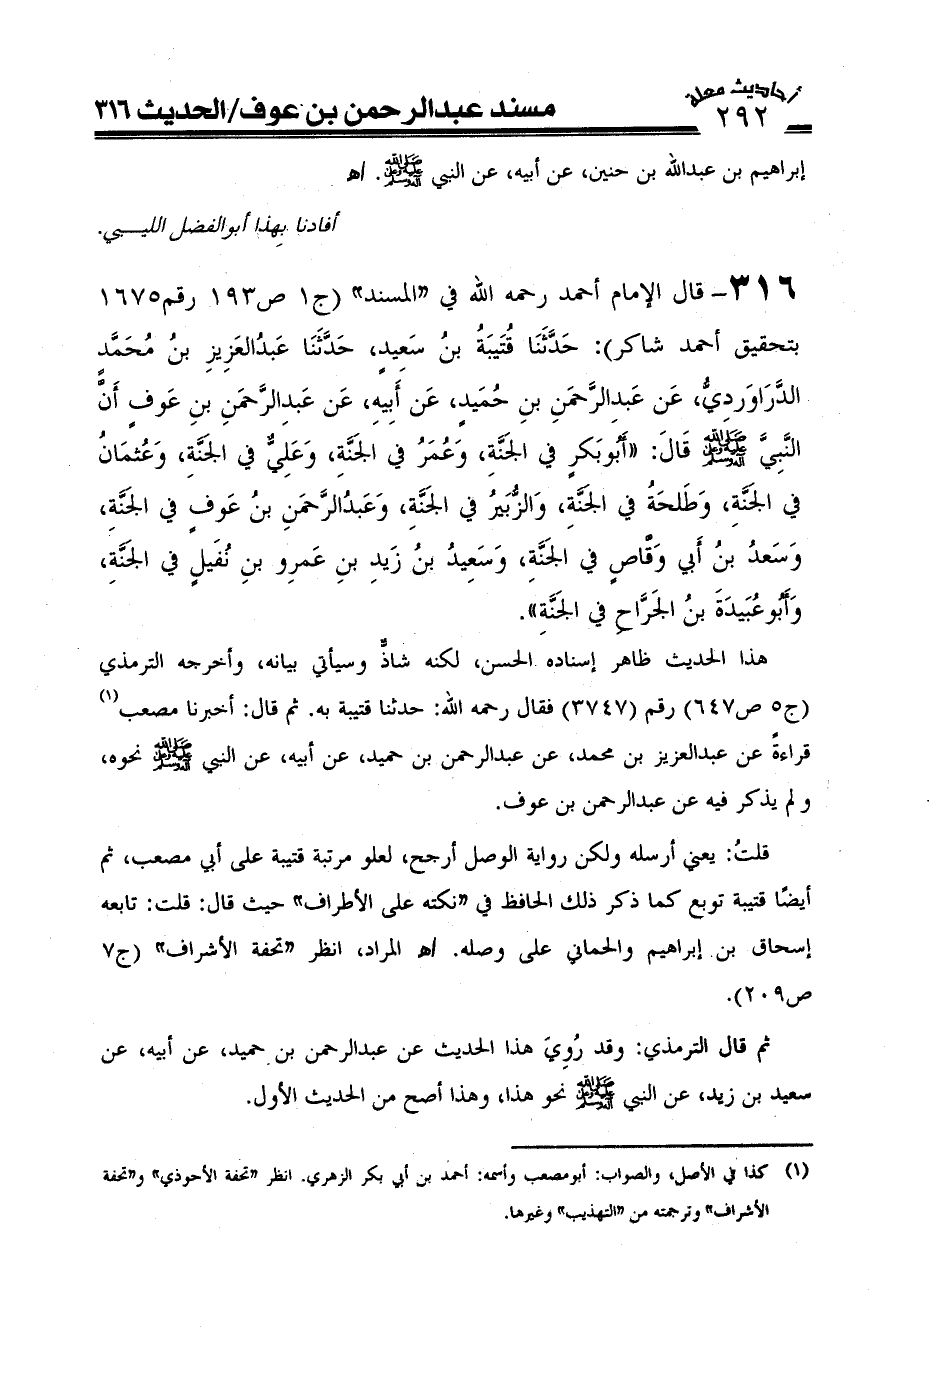 أحاديث معلة
٢٩٢
مسند عبدالرحمن بن عوف/الحديث ٣١٦
إبراهيم بن عبدالله بن حنين، عن أبيه، عن النبي ﷺ. اﻫ
أفادنا بهذا أبوالفضل الليبي.
٣١٦- قال الإمام أحمد رحمه الله في «المسند» (ج١ ص١٩٣ رقم١٦٧٥
بتحقيق أحمد شاكر): حَدَّثَنَا قُتَيبَةُ بنُ سَعِيدٍ، حَدَّثَنَا عَبدُالعَزِيزِ بنُ مُحَمَّدٍ
الدَّرَاوَردِيُّ، عَن عَبدِالرَّحمَنِ بنِ حُمَيدٍ، عَن أَبِيهِ، عَن عَبدِالرَّحمَنِ بنِ عَوفٍ أَنَّ
النَّبِيَّ ﷺ قَالَ: «أَبُوبَكرٍ فِي الجَنَّةِ، وَعُمَرُ فِي الجَنَّةِ، وَعَلِيٌّ فِي الجَنَّةِ، وَعُثمَانُ
فِي الجَنَّةِ، وَطَلحَةُ فِي الجَنَّةِ، وَالزُّبَيرُ فِي الجَنَّةِ، وَعَبدُالرَّحمَنِ بنُ عَوفٍ فِي الجَنَّةِ،
وَسَعدُ بنُ أَبِي وَقَّاصٍ فِي الجَنَّةِ، وَسَعِيدُ بنُ زَيدِ بنِ عَمرِو بنِ نُفَيلٍ فِي الجَنَّةِ،
وَأَبُوعُبَيدَةَ بنُ الجَرَّاحِ فِي الجَنَّةِ».
هذا الحديث ظاهر إسناده الحسن، لكنه شاذٌّ وسيأتي بيانه، وأخرجه الترمذي
(ج٥ ص٦٤٧) رقم (٣٧٤٧) فقال رحمه الله: حدثنا قتيبة به. ثم قال: أخبرنا مصعب(١)
قراءةً عن عبدالعزيز بن محمد، عن عبدالرحمن بن حميد، عن أبيه، عن النبي ﷺ نحوه،
ولم يذكر فيه عن عبدالرحمن بن عوف.
قلتُ: يعني أرسله ولكن رواية الوصل أرجح، لعلو مرتبة قتيبة على أبي مصعب، ثم
أيضًا قتيبة توبع كما ذكر ذلك الحافظ في «نكته على الأطراف» حيث قال: قلت: تابعه
إسحاق بن إبراهيم والحماني على وصله. اﻫ المراد، انظر «تحفة الأشراف» (ج٧
ص٢٠٩).
ثم قال الترمذي: وقد رُوِيَ هذا الحديث عن عبدالرحمن بن حميد، عن أبيه، عن
سعيد بن زيد، عن النبي ﷺ نحو هذا، وهذا أصح من الحديث الأول.
(١) كذا في الأصل، والصواب: أبومصعب وأسمه: أحمد بن أبي بكر الزهري. انظر «تحفة الأحوذي» و«تحفة
الأشراف» وترجمته من «التهذيب» وغيرها.